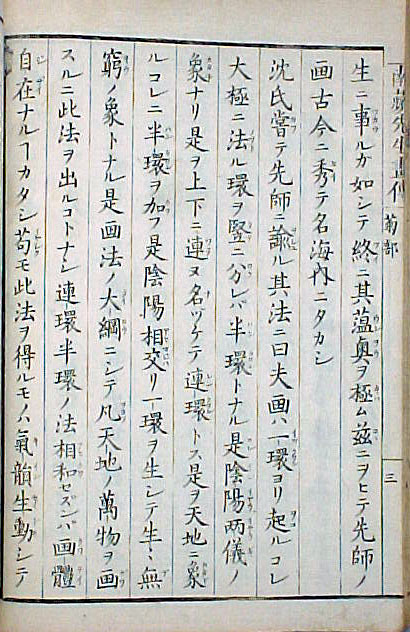 生ニ事ルガ如シテ終ニ其蘊奥ヲ極ム茲ニヲヒテ先師ノ
画古今ニ秀テ名海内ニタカシ
沈氏嘗テ先師ニ諭ル其法ニ曰夫画ハ一環ヨリ起ルコレ
大極ニ法ル環ヲ竪ニ分レバ半環トナル是陰陽両儀ノ
象ナリ是ヲ上下ニ連ヌ名ツケテ連環トス是ヲ天地ニ象
ルコレニ半環ヲ加フ是陰陽相交リ一環ヲ生シテ生〻無
窮ノ象トナル是画法ノ大綱ニシテ凡天地ノ萬物ヲ画
スルニ此法ヲ出ルコトナシ連環半環ノ法相和セズンバ画體
自在ナルヿカタシ苟モ此法ヲ得ルモノハ氣韻生動シテ
三